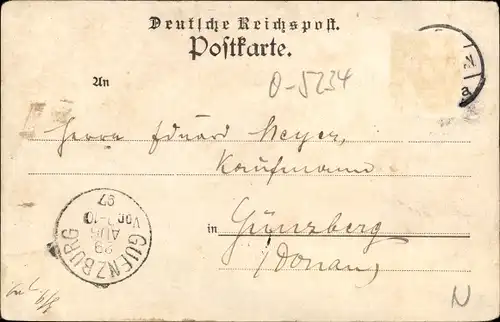 Deutsche Reichspost.
Postkarte.
0-5234
An
Herrn Eduard Meyer,
Kaufmann
in Günzberg
(Donau)
GUENZBURG
29
AUG
97
N